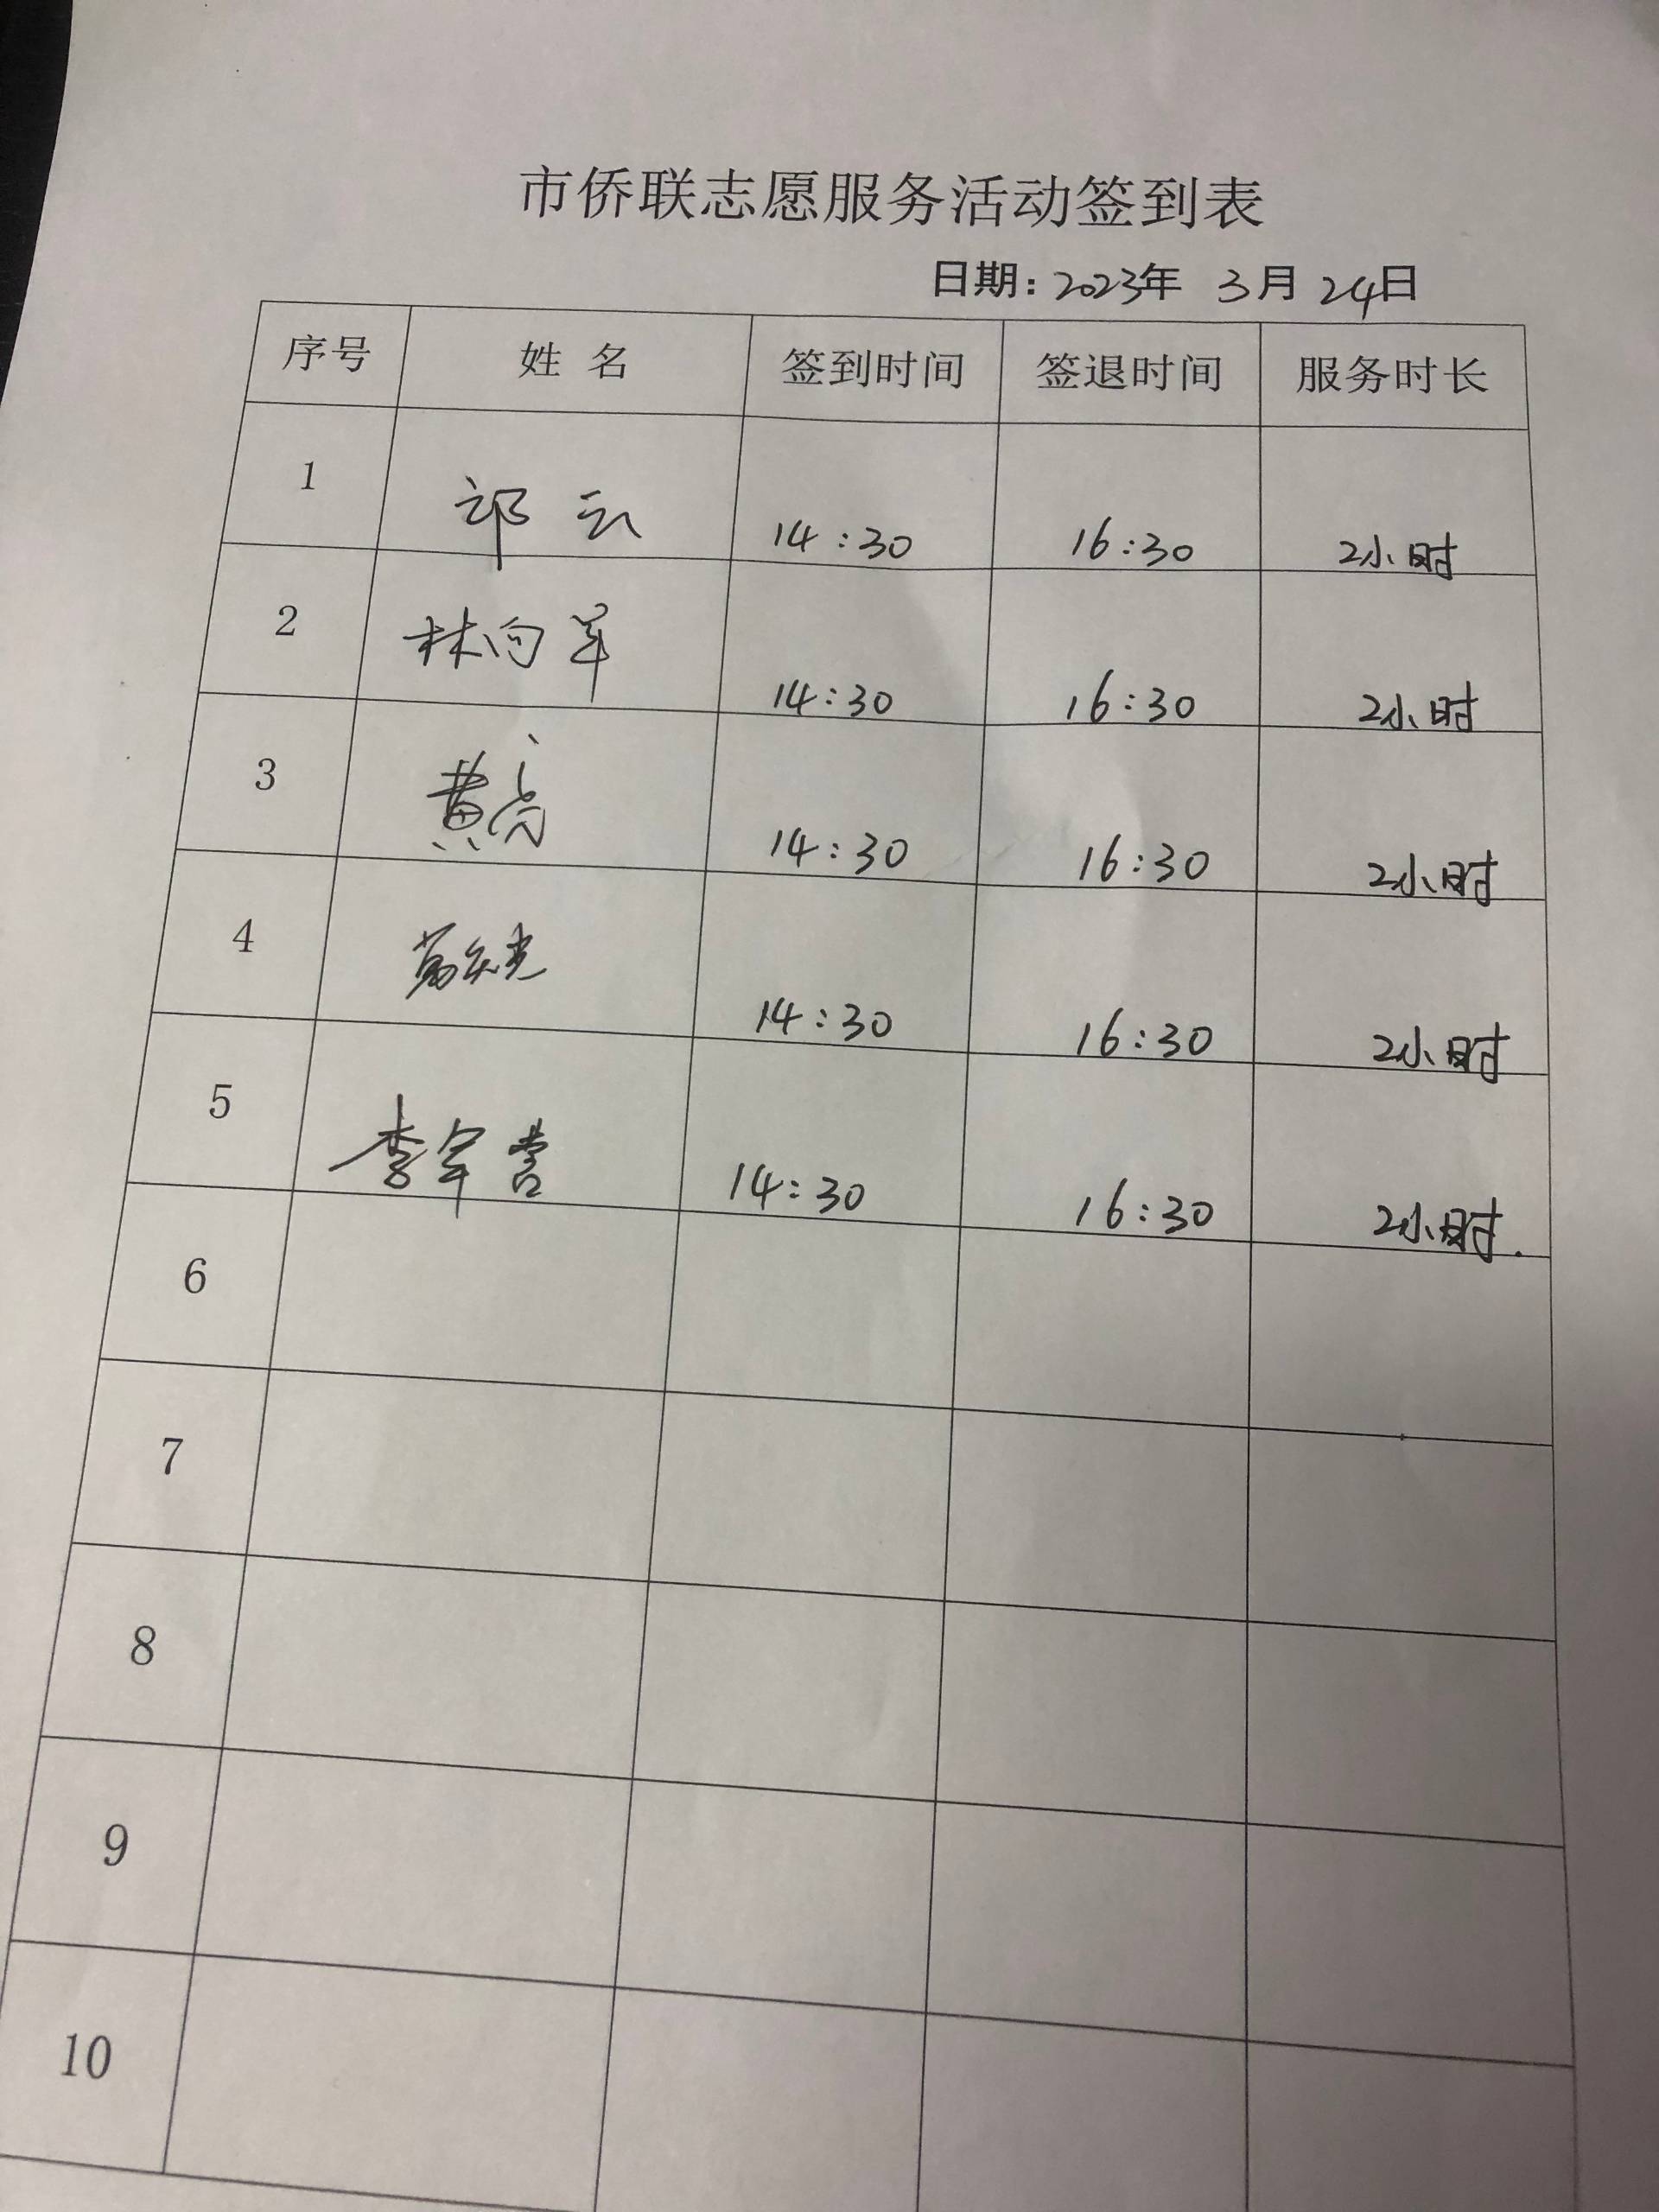 市侨联志愿服务活动签到表
日期: 2023年 3月 24日
序号 姓 名 签到时间 签退时间 服务时长
1 云 14:30 16:30 2小时
2 林向军 14:30 16:30 2小时
3 黄亮 14:30 16:30 2小时
4 14:30 16:30 2小时
5 李军营 14:30 16:30 2小时.
6
7
8
9
10